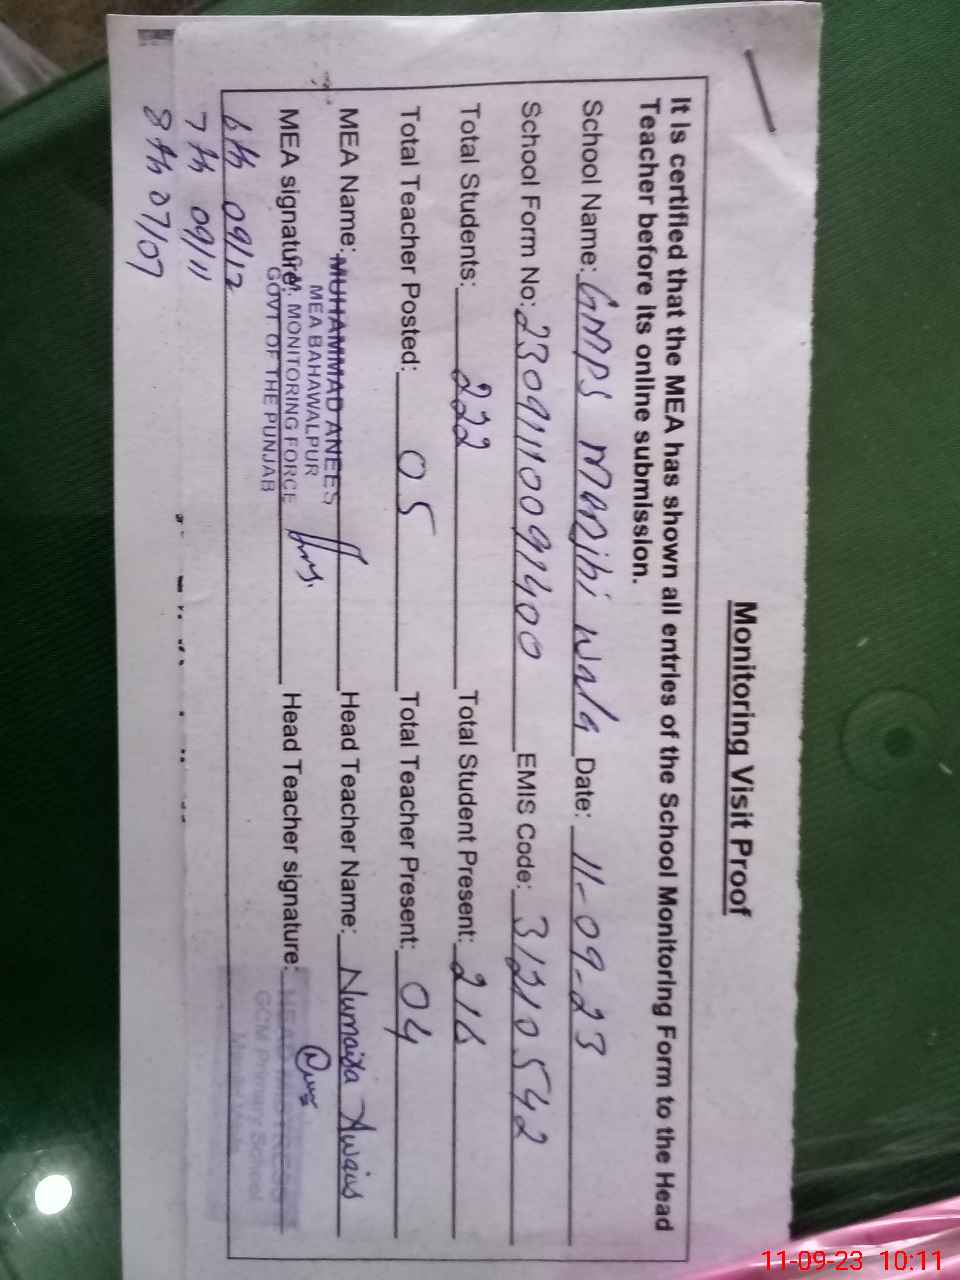 Monitoring Visit Proof
It is certified that the MEA has shown all entries of the School Monitoring Form to the Head
Teacher before its online submission.
School Name: GMPS Manjhi Wala Date: 11-09-23
School Form No: 2309110091400 EMIS Code: 31210542
Total Students: 222 Total Student Present: 216
Total Teacher Posted: 05 Total Teacher Present: 04
MEA Name: MUHAMMAD ANEES Head Teacher Name: Numaisa Awais
MEA BAHAWALPUR
MEA signature: MONITORING FORCE Head Teacher signature: HEAD MISTRESS
GOVT OF THE PUNJAB GGM Primary School
6th 09/12
7th 09/11
8th 07/07
11-09-23 10:11